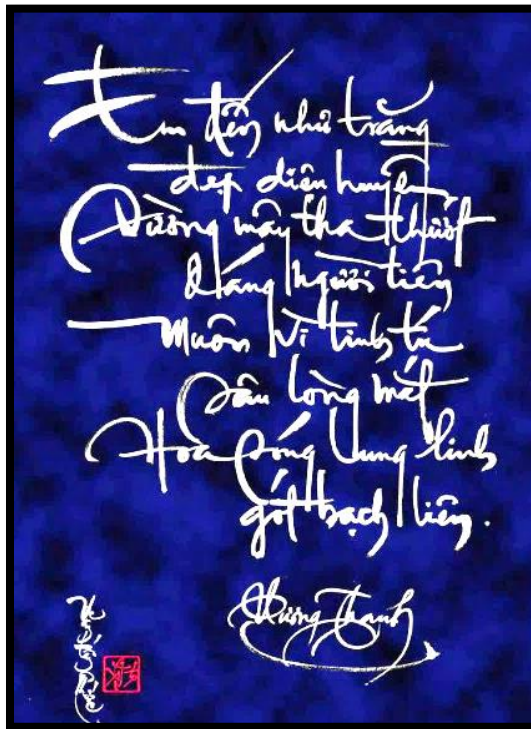 Em đến như trăng
đẹp diễm huyền
Vường mây tha thướt
dáng người tiên
Muôn vì tinh tú
sâu lòng mắt
Hoa bóng lung linh
gót bạch liên.
Hương Thanh